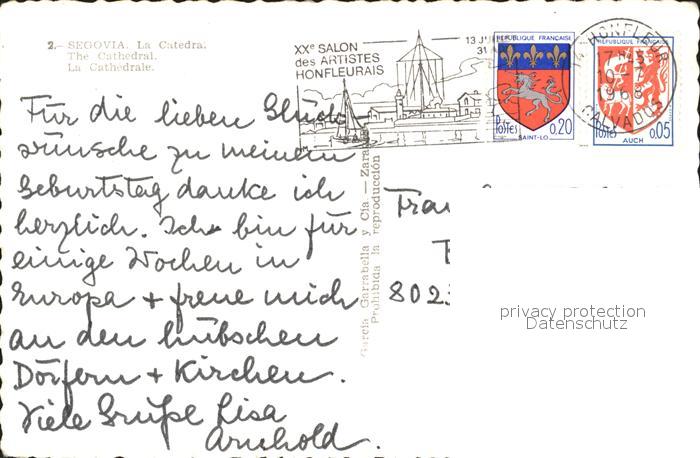 2.- SEGOVIA. La Catedral.
The Cathedral.
La Cathédrale.
XXe SALON
des ARTISTES
HONFLEURAIS
13 JUIL
31
REPUBLIQUE FRANÇAISE
Postes 0,20
SAINT-LO
REPUBLIQUE FRANÇAISE
Postes 0,05
AUCH
14 HONFLEUR
10-7
1968
CALVADOS
Für die lieben Glück-
wünsche zu meinem
Geburtstag danke ich
herzlich. Ich bin für
einige Wochen in
Europa + freue mich
an den hübschen
Dörfern + Kirchen.
Viele Grüße Lisa
Arnhold.
García Garrabella y Cía. - Zara
Prohibida la reproducción
Frau
802
privacy protection
Datenschutz